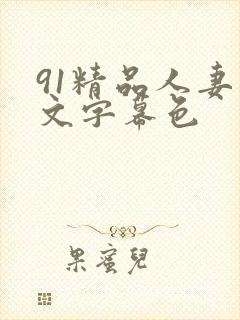 91精品人妻
文字幕色
果蜜兒